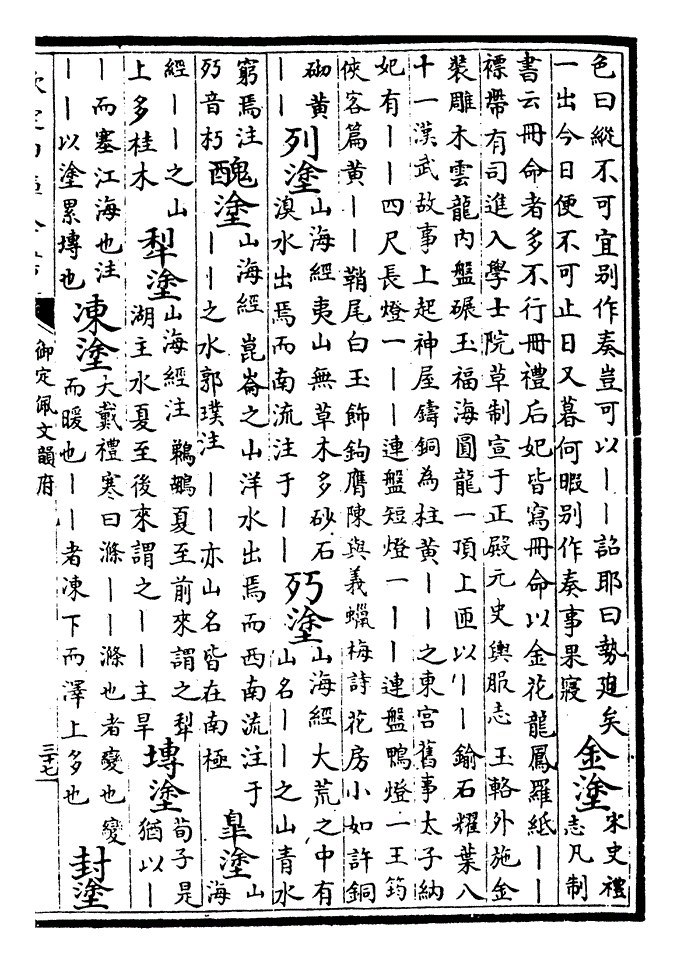 色曰縱不可宜别作奏豈可以丨丨詔耶曰勢廹矣
一出今日便不可止日又暮何暇别作奏事果寢
金塗
宋史禮
志凡制
書云冊命者多不行冊禮后妃皆寫冊命以金花龍鳳羅紙丨丨
褾帶有司進入學士院草制宣于正殿元史輿服志玉輅外施金
裝雕木雲龍内盤碾玉福海圓龍一頂上匝以丨丨鍮石耀葉八
十一漢武故事上起神屋鑄銅為柱黄丨丨之東宮舊事太子納
妃有丨丨四尺長燈一丨丨連盤短燈一丨丨連盤鴨燈一王筠
俠客篇黄丨丨鞘尾白玉飾鉤膺陳與義蠟梅詩花房小如許銅
砌黄
丨丨
列塗
山海經夷山無草木多砂石
湨水出焉而南流注于丨丨
㱙塗
山海經大荒之中有
山名丨丨之山青水
窮焉注
㱙音朽
醜塗
山海經崑崙之山洋水出焉而西南流注于
丨丨之水郭璞注丨丨亦山名皆在南極
皐塗
山
海
經丨丨之山
上多桂木
犂塗
山海經注鵜鶘夏至前來謂之犂
湖主水夏至後來謂之丨丨主旱
塼塗
荀子是
猶以丨
丨而塞江海也注
丨丨以塗累塼也
凍塗
大戴禮寒曰滌丨丨滌也者變也變
而暖也丨丨者凍下而澤上多也
封塗
御定佩文韻府
三十七